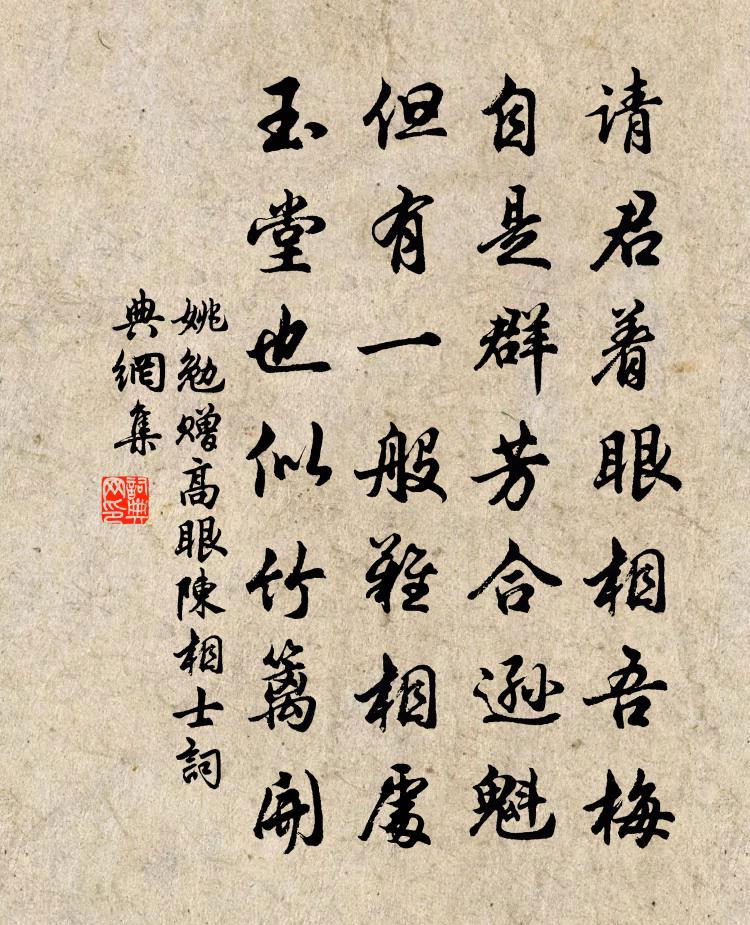 请君着眼相吾梅
自是群芳合逊魁
但有一般难相處
玉堂也似竹篱開
姚勉赠高眼陳相士詞
典網集
詞典网印